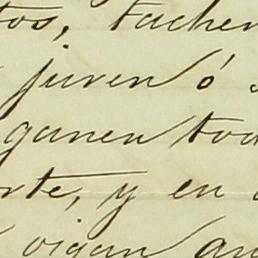 tos, tachen
juren ó
ganen tod
rte, y en
oigan au